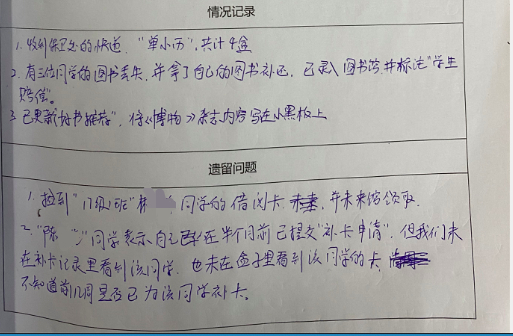 情况记录
1. 收到保卫处的快递,"单小历",共计4盒
2. 有三位同学的图书丢失,并拿了自己的图书补还,已录入图书馆并标注"学生
赔偿"。
3. 已更新"好书推荐",将《博物》杂志内容写在小黑板上
遗留问题
1. 捡到"11级1班"林 同学的借阅卡,并未来馆领取.
2. "陈 "同学表示自己在半个月前已提交"补卡申请",但我们未
在补卡记录里看到该同学,也未在盒子里看到该同学的卡,
不知道前几周是否已为该同学补卡。